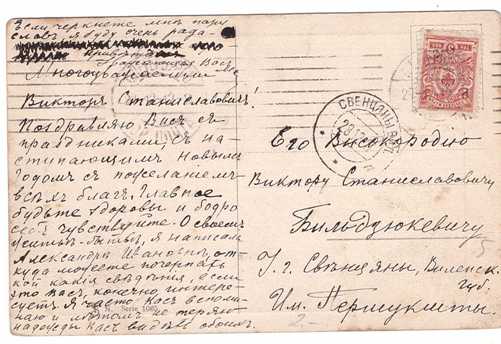 Если черкнете мнѣ пару
словъ, я буду очень рада.
Многоуважаемый
Викторъ Станиславовичъ!
Поздравляю Васъ съ
праздниками, съ на-
ступающимъ Новымъ
Годомъ съ пожеланіемъ
всѣхъ благъ. Главное
будьте здоровы и бодро
себя чувствуйте. О своемъ
я написала
Александрѣ Ивановнѣ, от-
куда можете почерпать
кой какія свѣдѣнія, если
это васъ, конечно, интере-
суетъ. Я часто Васъ вспоми-
наю и не теряю
надежды Васъ видѣть
Serie 106
СВЕНЦЯНЫ ВИЛ.
Его Высокородію
Виктору Станиславовичу
Бильдзюкевичу
У. г. Свѣнцяны, Виленск.
губ.
Им. Першукшты.